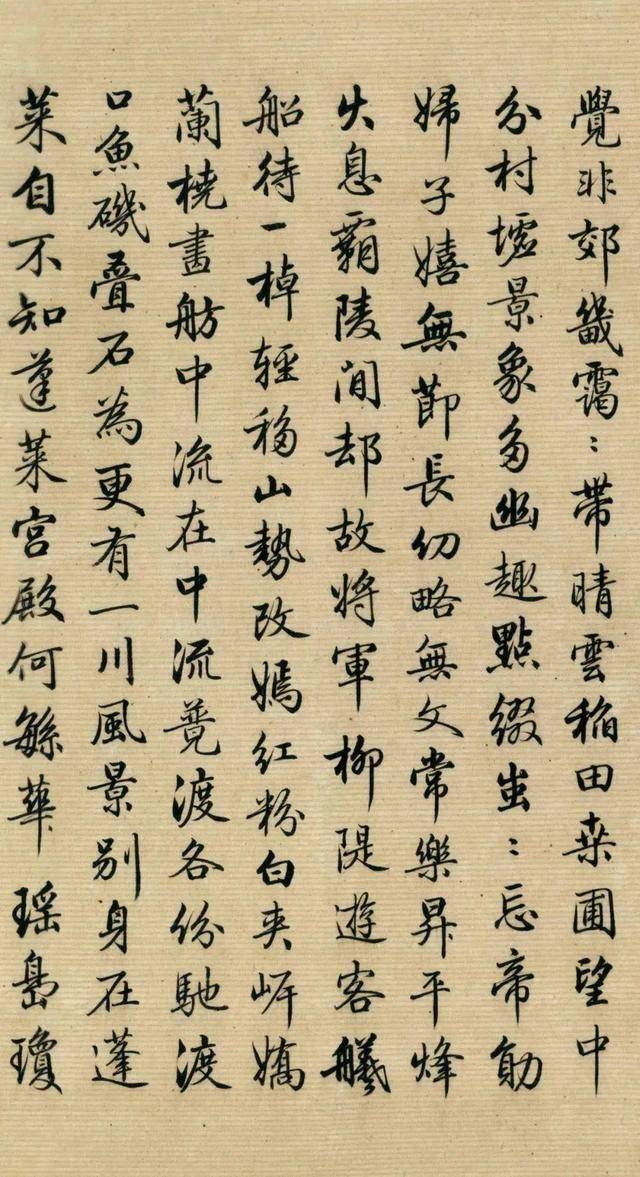 覺非郊畿靄〻帶晴雲稻田桑圃望中
分村墟景象多幽趣點綴蚩〻忘帝力
婦子嬉無節長幼略無文常樂昇平烽
火息霸陵間却故將軍柳隄遊客艤
船待一棹輕移山勢改嫣紅粉白夾岸嬌
蘭橈畫舫中流在中流競渡各份馳渡
口魚磯疊石為更有一川風景別身在蓬
萊自不知蓬萊宮殿何繇華瑶島瓊